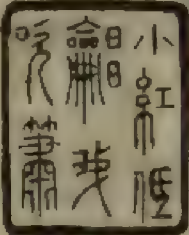 小紅低
唱我
吹簫